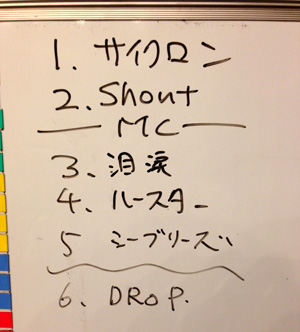 1. サイクロン
2. Shout
MC
3、泪涙
4、ルースター
5 シーブリーズ
6. DROP.